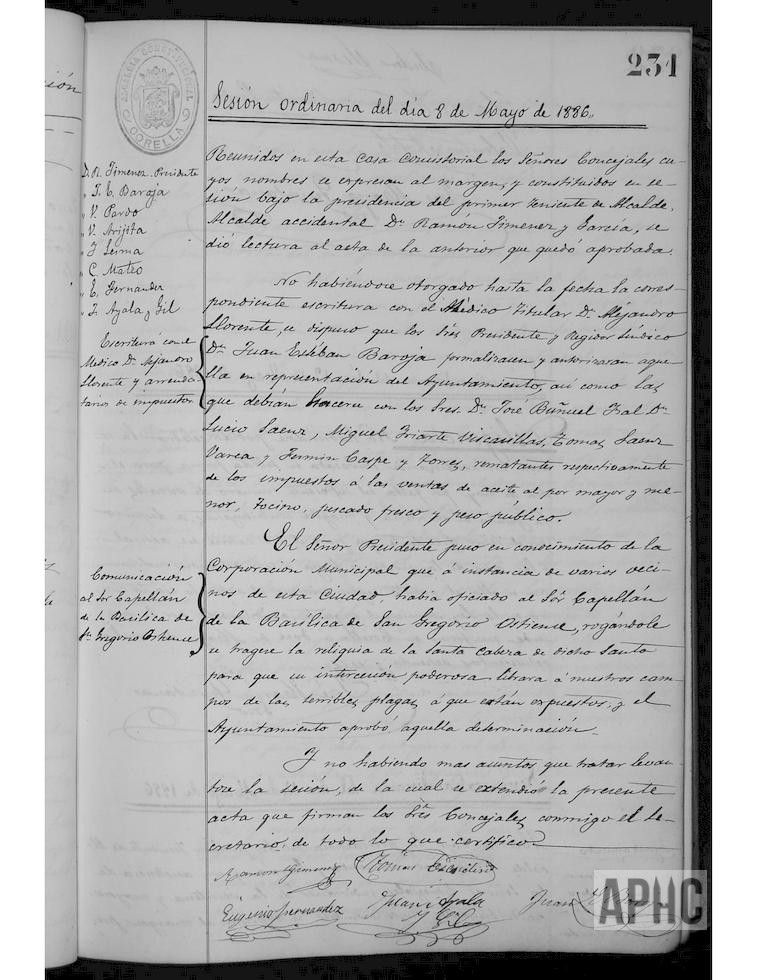 231
ALCALDIA CONSTITUCIONAL
CORELLA
Sesión ordinaria del dia 8 de Mayo de 1886,,
D. R. Jimenez Presidente
" J. E. Baroja
" V. Pardo
" V. Arijita
" J. Lerma
" C. Mateo
" E. Fernandez
" J. Ayala y Gil
Reunidos en esta Casa Consistorial los Señores Concejales cu-
yos nombres se expresan al margen, y constituidos en se-
sión bajo la presidencia del primer Teniente de Alcalde,
Alcalde accidental Dn. Ramón Jimenez y García, se
dió lectura al acta de la anterior que quedó aprobada.
Escritura con el
Medico Dn. Alejandro
Llorente y arrenda-
tarios de impuestos
No habiéndose otorgado hasta la fecha la corres-
pondiente escritura con el Médico Titular Dn. Alejandro
Llorente, se dispuso que los Sres. Presidente y Regidor Sindico
Dn. Juan Esteban Baroja formalizasen y autorizaran aque-
lla en representación del Ayuntamiento, asi como las
que debrán hacerse con los Sres. Dn. José Buñuel Fral. Dn.
Lucio Saenz, Miguel Iriarte Viscarillas, Tomas Saenz
Varea y Fermin Caspe y Torres, rematantes respectivamente
de los impuestos á las ventas de aceite al por mayor y me-
nor, Tocino, pescado fresco y peso público.
Comunicación
al Sor Capellán
de la Basilica de
Sn. Gregorio Ostiense
El Señor Presidente puso en conocimiento de la
Corporación Municipal que á instancia de varios veci-
nos de esta Ciudad, habia oficiado al Sór Capellán
de la Basílica de San Gregorio Ostiense, rogándole
se tragese la reliquia de la Santa Cabeza de dicho Santo
para que su intercesión poderosa librara á nuestros cam-
pos de las terribles plagas á que están expuestos, y el
Ayuntamiento aprobó aquella determinación.
Y no habiendo mas asuntos que tratar levan-
tose la sesión, de la cual se extendió la presente
acta que firman los Sres. Concejales conmigo el Se-
cretario, de todo lo que certifico.
Ramon Jimenez
Eugenio Fernandez
Juan Ayala
y Gil
Juan
APHC